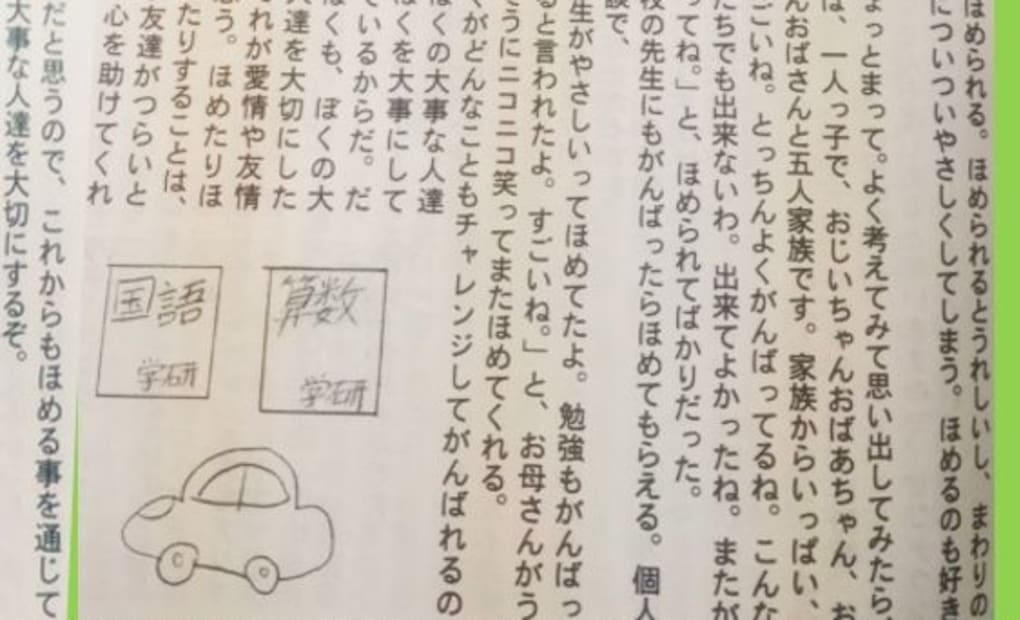 ほめられる。ほめられるとうれしいし、まわりの
についついやさしくしてしまう。ほめるのも好き
ょっとまって。よく考えてみて思い出してみたら、
は、一人っ子で、おじいちゃんおばあちゃん、お
んおばさんと五人家族です。家族からいっぱい、
ごいね。とっちんよくがんばってるね。こんな
たちでも出来ないわ。出来てよかったね。またが
ってね。」と、ほめられてばかりだった。
校の先生にもがんばったらほめてもらえる。個人
談で、
生がやさしいってほめてたよ。勉強もがんばっ
ると言われたよ。すごいね。」と、お母さんがう
そうにニコニコ笑ってまたほめてくれる。
くがどんなこともチャレンジしてがんばれるの
ぼくの大事な人達
ぼくを大事にして
ているからだ。だ
ぼくも、ぼくの大
人達を大切にした
それが愛情や友情
思う。ほめたりほ
たりすることは、
友達がつらいと
心を助けてくれ
算数
学研
国語
学研
だと思うので、これからもほめる事を通じて
大事な人達を大切にするぞ。